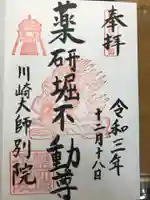 奉拝
令和三年
十二月十八日
薬研堀不動尊
川崎大師別院